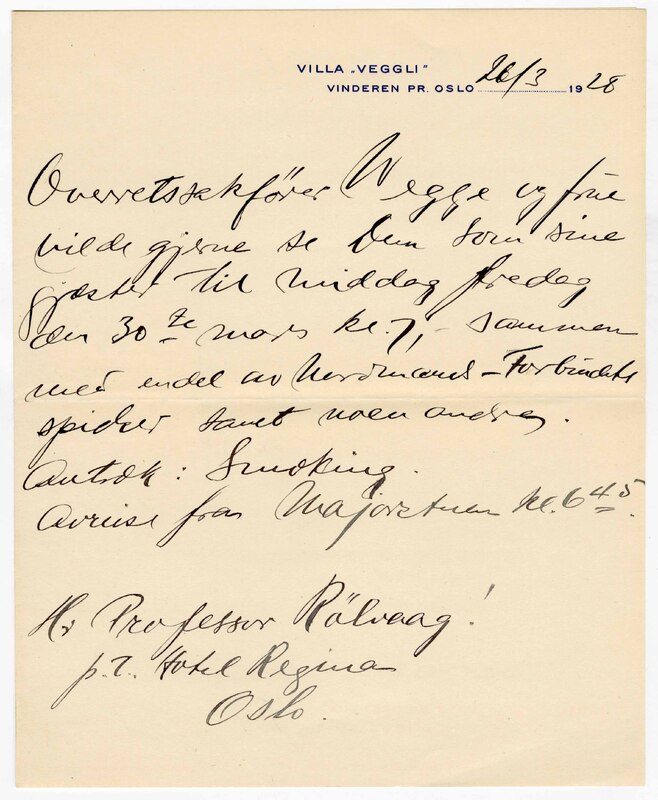 VILLA „VEGGLI"
VINDEREN PR. OSLO 26/3 1928
Overretssakfører Wegge og frue
vilde gjerne se Dem som sine
gjæster til middag fredag
den 30te mars kl. 7,- sammen
med endel av Nordmands-Forbundets
spidser samt noen andre.
Antræk: Smoking.
Avreise fra Majorstuen kl. 6 45.
Hr Professor Rölvaag!
p.t. Hotel Regina
Oslo.